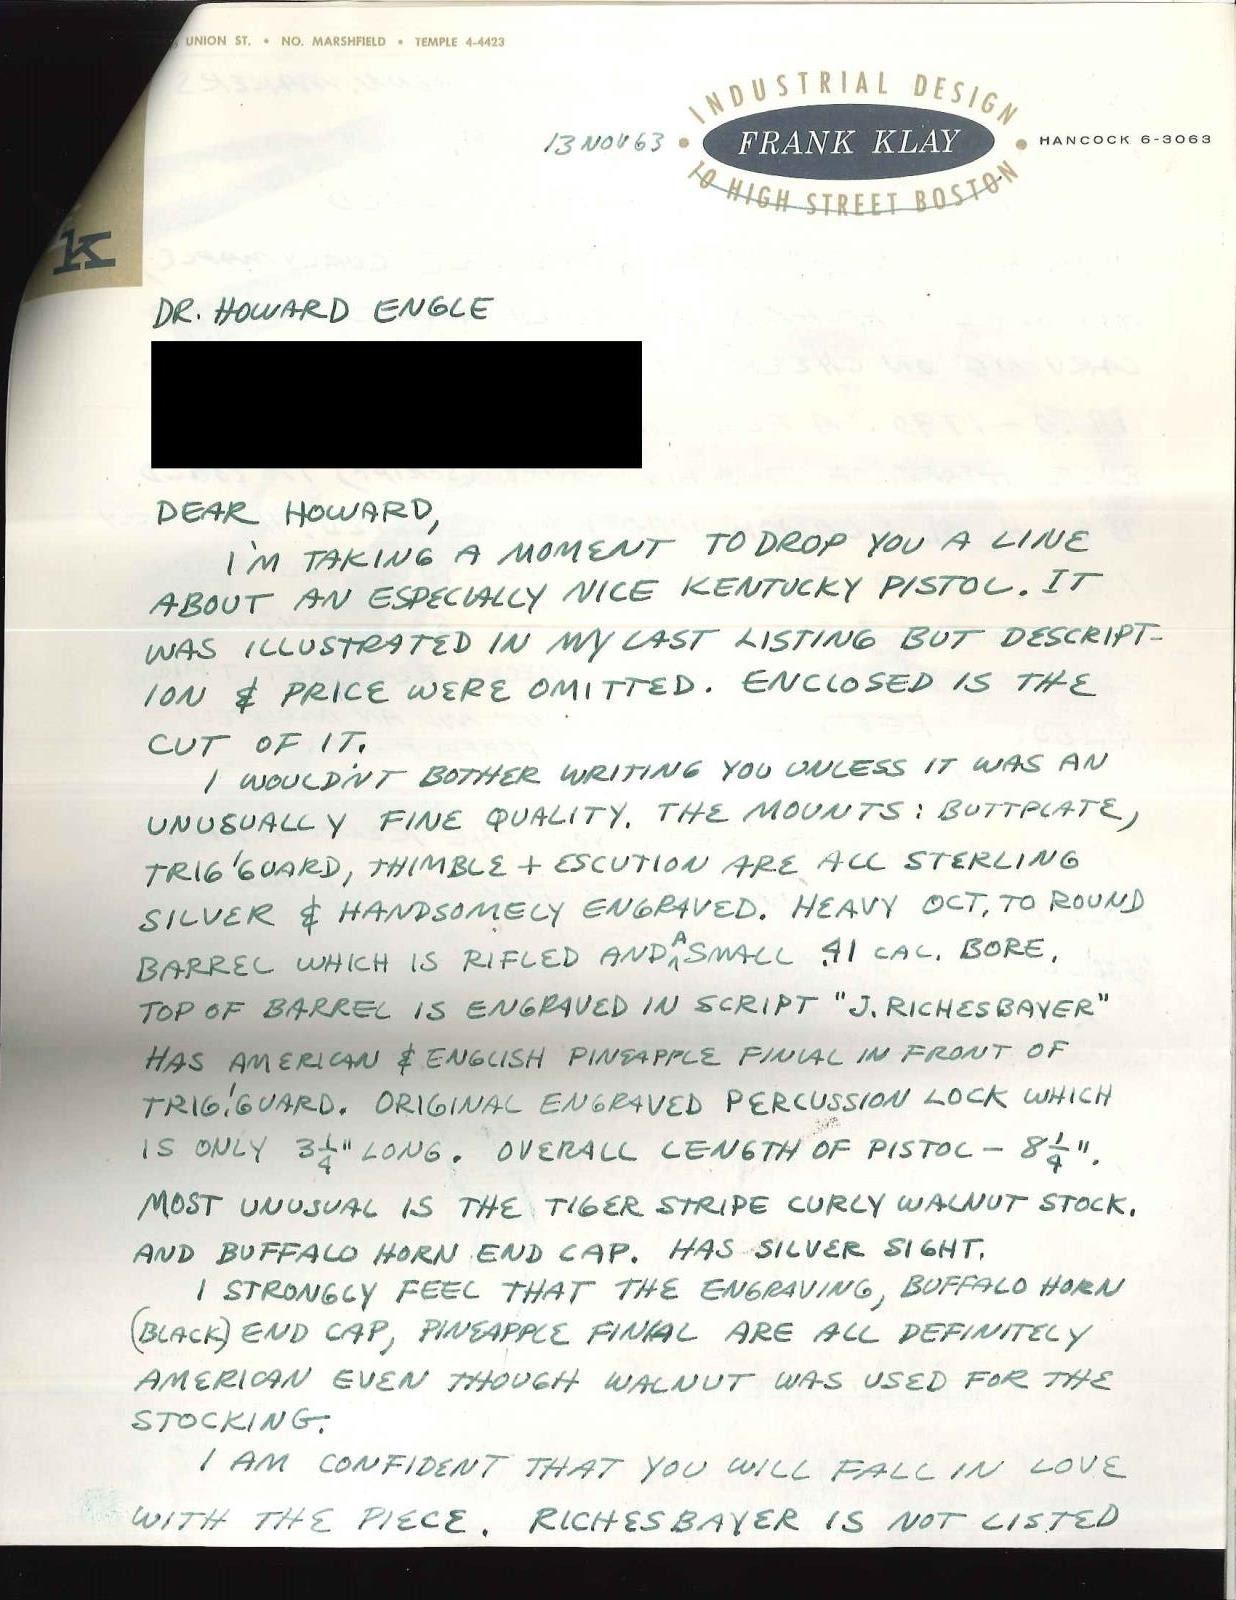 UNION ST. • NO. MARSHFIELD • TEMPLE 4-4423
INDUSTRIAL DESIGN
13 NOV 63 • FRANK KLAY • HANCOCK 6-3063
10 HIGH STREET BOSTON
k
DR. HOWARD ENGLE
DEAR HOWARD,
I'M TAKING A MOMENT TO DROP YOU A LINE
ABOUT AN ESPECIALLY NICE KENTUCKY PISTOL. IT
WAS ILLUSTRATED IN MY LAST LISTING BUT DESCRIPT-
ION & PRICE WERE OMITTED. ENCLOSED IS THE
CUT OF IT.
I WOULDN'T BOTHER WRITING YOU UNLESS IT WAS AN
UNUSUALLY FINE QUALITY. THE MOUNTS: BUTTPLATE,
TRIG'GUARD, THIMBLE + ESCUTION ARE ALL STERLING
SILVER & HANDSOMELY ENGRAVED. HEAVY OCT. TO ROUND
BARREL WHICH IS RIFLED AND A SMALL .41 CAL. BORE.
TOP OF BARREL IS ENGRAVED IN SCRIPT "J. RICHESBAYER"
HAS AMERICAN & ENGLISH PINEAPPLE FINIAL IN FRONT OF
TRIG.'GUARD. ORIGINAL ENGRAVED PERCUSSION LOCK WHICH
IS ONLY 3 1/4" LONG. OVERALL LENGTH OF PISTOL - 8 1/4".
MOST UNUSUAL IS THE TIGER STRIPE CURLY WALNUT STOCK.
AND BUFFALO HORN END CAP. HAS SILVER SIGHT.
I STRONGLY FEEL THAT THE ENGRAVING, BUFFALO HORN
(BLACK) END CAP, PINEAPPLE FINIAL ARE ALL DEFINITELY
AMERICAN EVEN THOUGH WALNUT WAS USED FOR THE
STOCKING.
I AM CONFIDENT THAT YOU WILL FALL IN LOVE
WITH THE PIECE. RICHESBAYER IS NOT LISTED